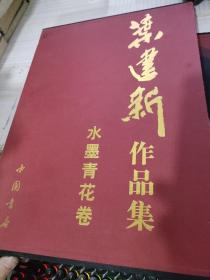 叶建新
作品集
水墨青花卷
中国书店